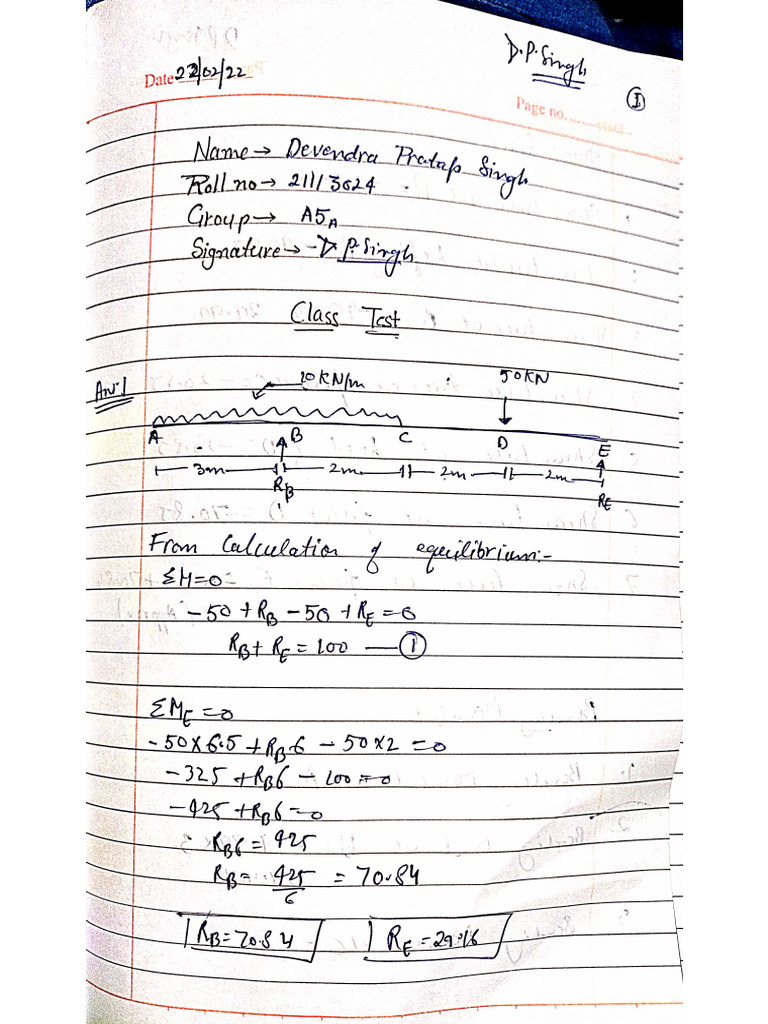 D.P.Singh
Date 22/02/22
Page no.
①
Name → Devendra Pratap Singh
Roll no → 21113024
Group → A5A
Signature → D.P.Singh
Class Test
Ans:1
10 KN/m
50 KN
A B C D E
3m 2m 2m 2m
RB RE
From Calculation of equilibrium:-
ΣH=0
-50 + RB - 50 + RE = 0
RB + RE = 100 — ①
ΣME = 0
-50×6.5 + RB6 - 50×2 = 0
-325 + RB6 - 100 = 0
-425 + RB6 = 0
RB6 = 425
RB = 425/6 = 70.84
RB = 70.84
RE = 29.16